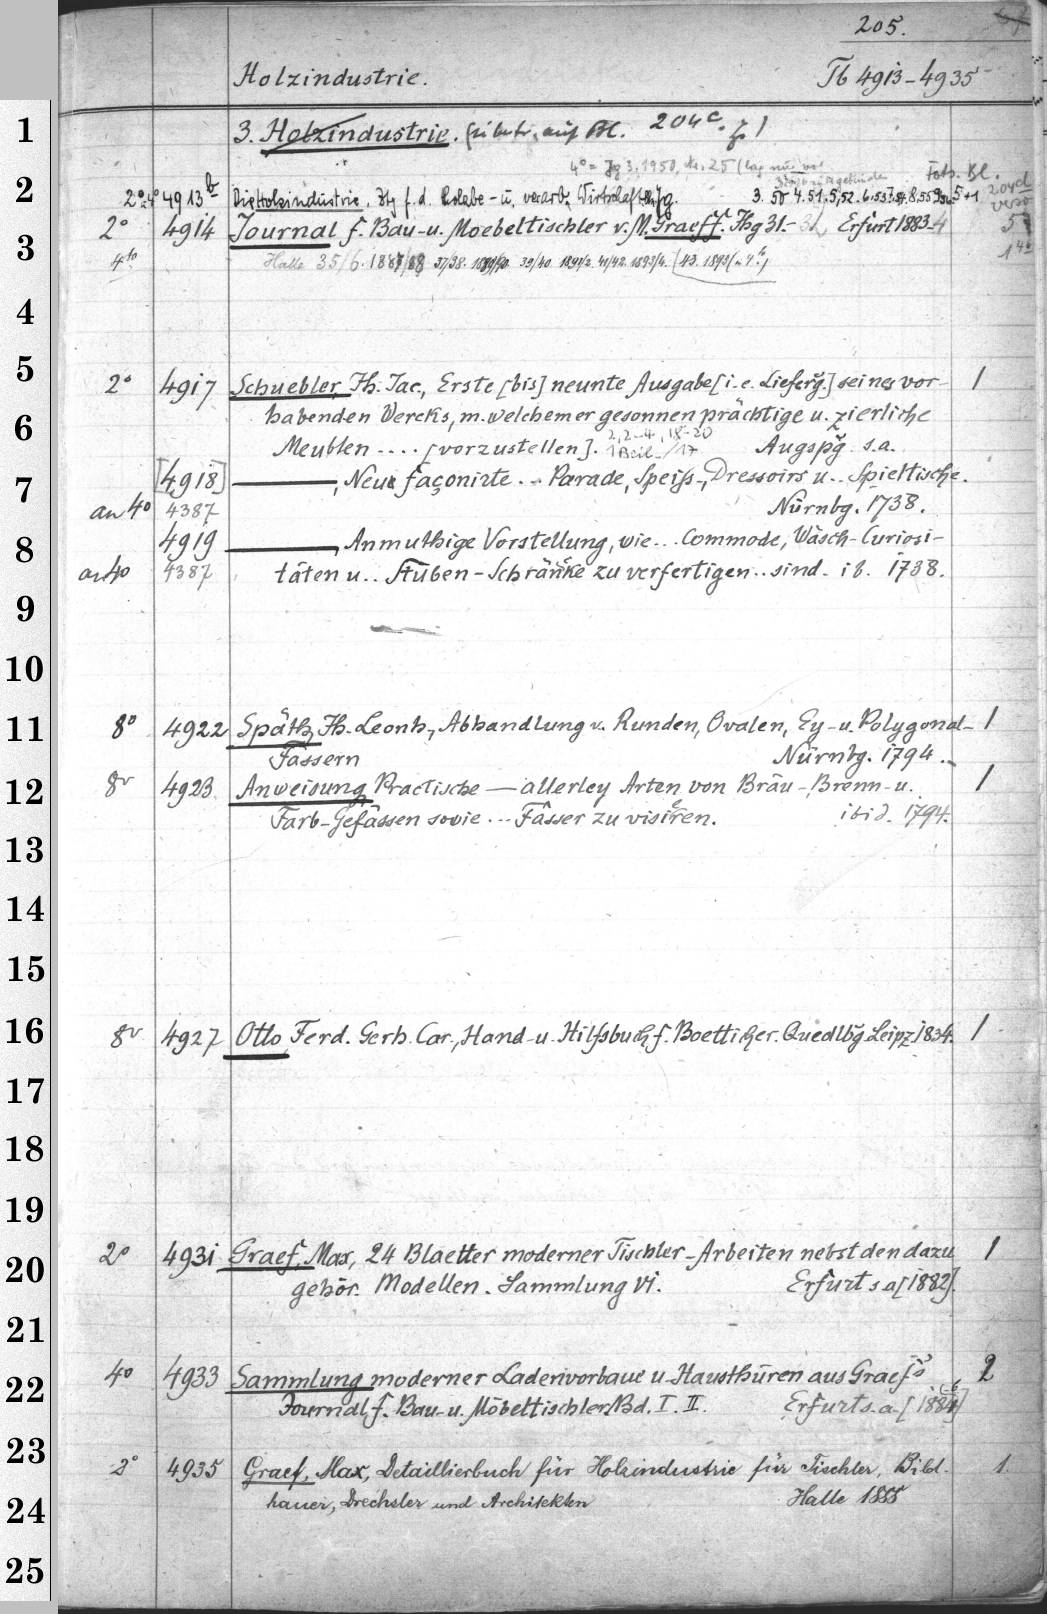 205.
Holzindustrie. Tb 4913-4935
3. Holzindustrie. auf Bl. 204c.
4° = Jg 3, 1950, Nr. 25 (lag nie vor
2° 4° 4913b Die Holzindustrie. Ztg f. d. Holzbe- u. verarb. Wirtschaft. Jg. 3. 50 4. 51, 5, 52. 6. 53 7. 54. 8. 55 5+1 204d verso
2° 4914 Journal f. Bau- u. Moebeltischler v. M. Graeff. Jhg 31.- Erfurt 1883-4 5
4to Halle 35/6. 1887/88 37/38. 39/40 41/42. 1893/4. (43. 1895
2° 4917 Schuebler, Jh. Jac., Erste [bis] neunte Ausgabe [i. e. Lieferg.] seines vor- 1
habenden Wercks, m. welchem er gesonnen prächtige u. zierliche
Meublen .... [vorzustellen]. 2, 2-4, 18-20 1 Beil. /17 Augspg. s.a.
[4918] ———, Neu façonirte ... Parade, Speiss-, Dressoirs u.. Spieltische.
an 40 4387 Nürnbg. 1738.
4919 ———, Anmuthige Vorstellung, wie... Commode, Wäsch- Curiosi-
an 40 4387 täten u.. Stuben-Schränke zu verfertigen.. sind. ib. 1738.
8° 4922 Späth, Jh. Leonh., Abhandlung v. Runden, Ovalen, Ey- u. Polygonal- 1
Fässern Nürnbg. 1794.
8v 4923 Anweisung, Practische — allerley Arten von Bräu-, Brenn- u. 1
Farb-Gefässen sowie ... Fässer zu visiren. ibid. 1794.
8v 4927 Otto, Ferd. Gerh. Car., Hand- u. Hilfsbuch f. Boetticher. Quedlbg. Leipz 1834. 1
2° 4931 Graef, Max, 24 Blaetter moderner Tischler-Arbeiten nebst den dazu 1
gehör. Modellen. Sammlung VI. Erfurt s a [1882].
4° 4933 Sammlung moderner Ladenvorbaue u. Hausthüren aus Graef's 2
Journal f. Bau- u. Möbeltischler. Bd. I. II. Erfurt s. a. [1884]
2° 4935 Graef, Max, Detaillierbuch für Holzindustrie für Tischler, Bild- 1
hauer, Drechsler und Architekten Halle 1885
1
2
3
4
5
6
7
8
9
10
11
12
13
14
15
16
17
18
19
20
21
22
23
24
25